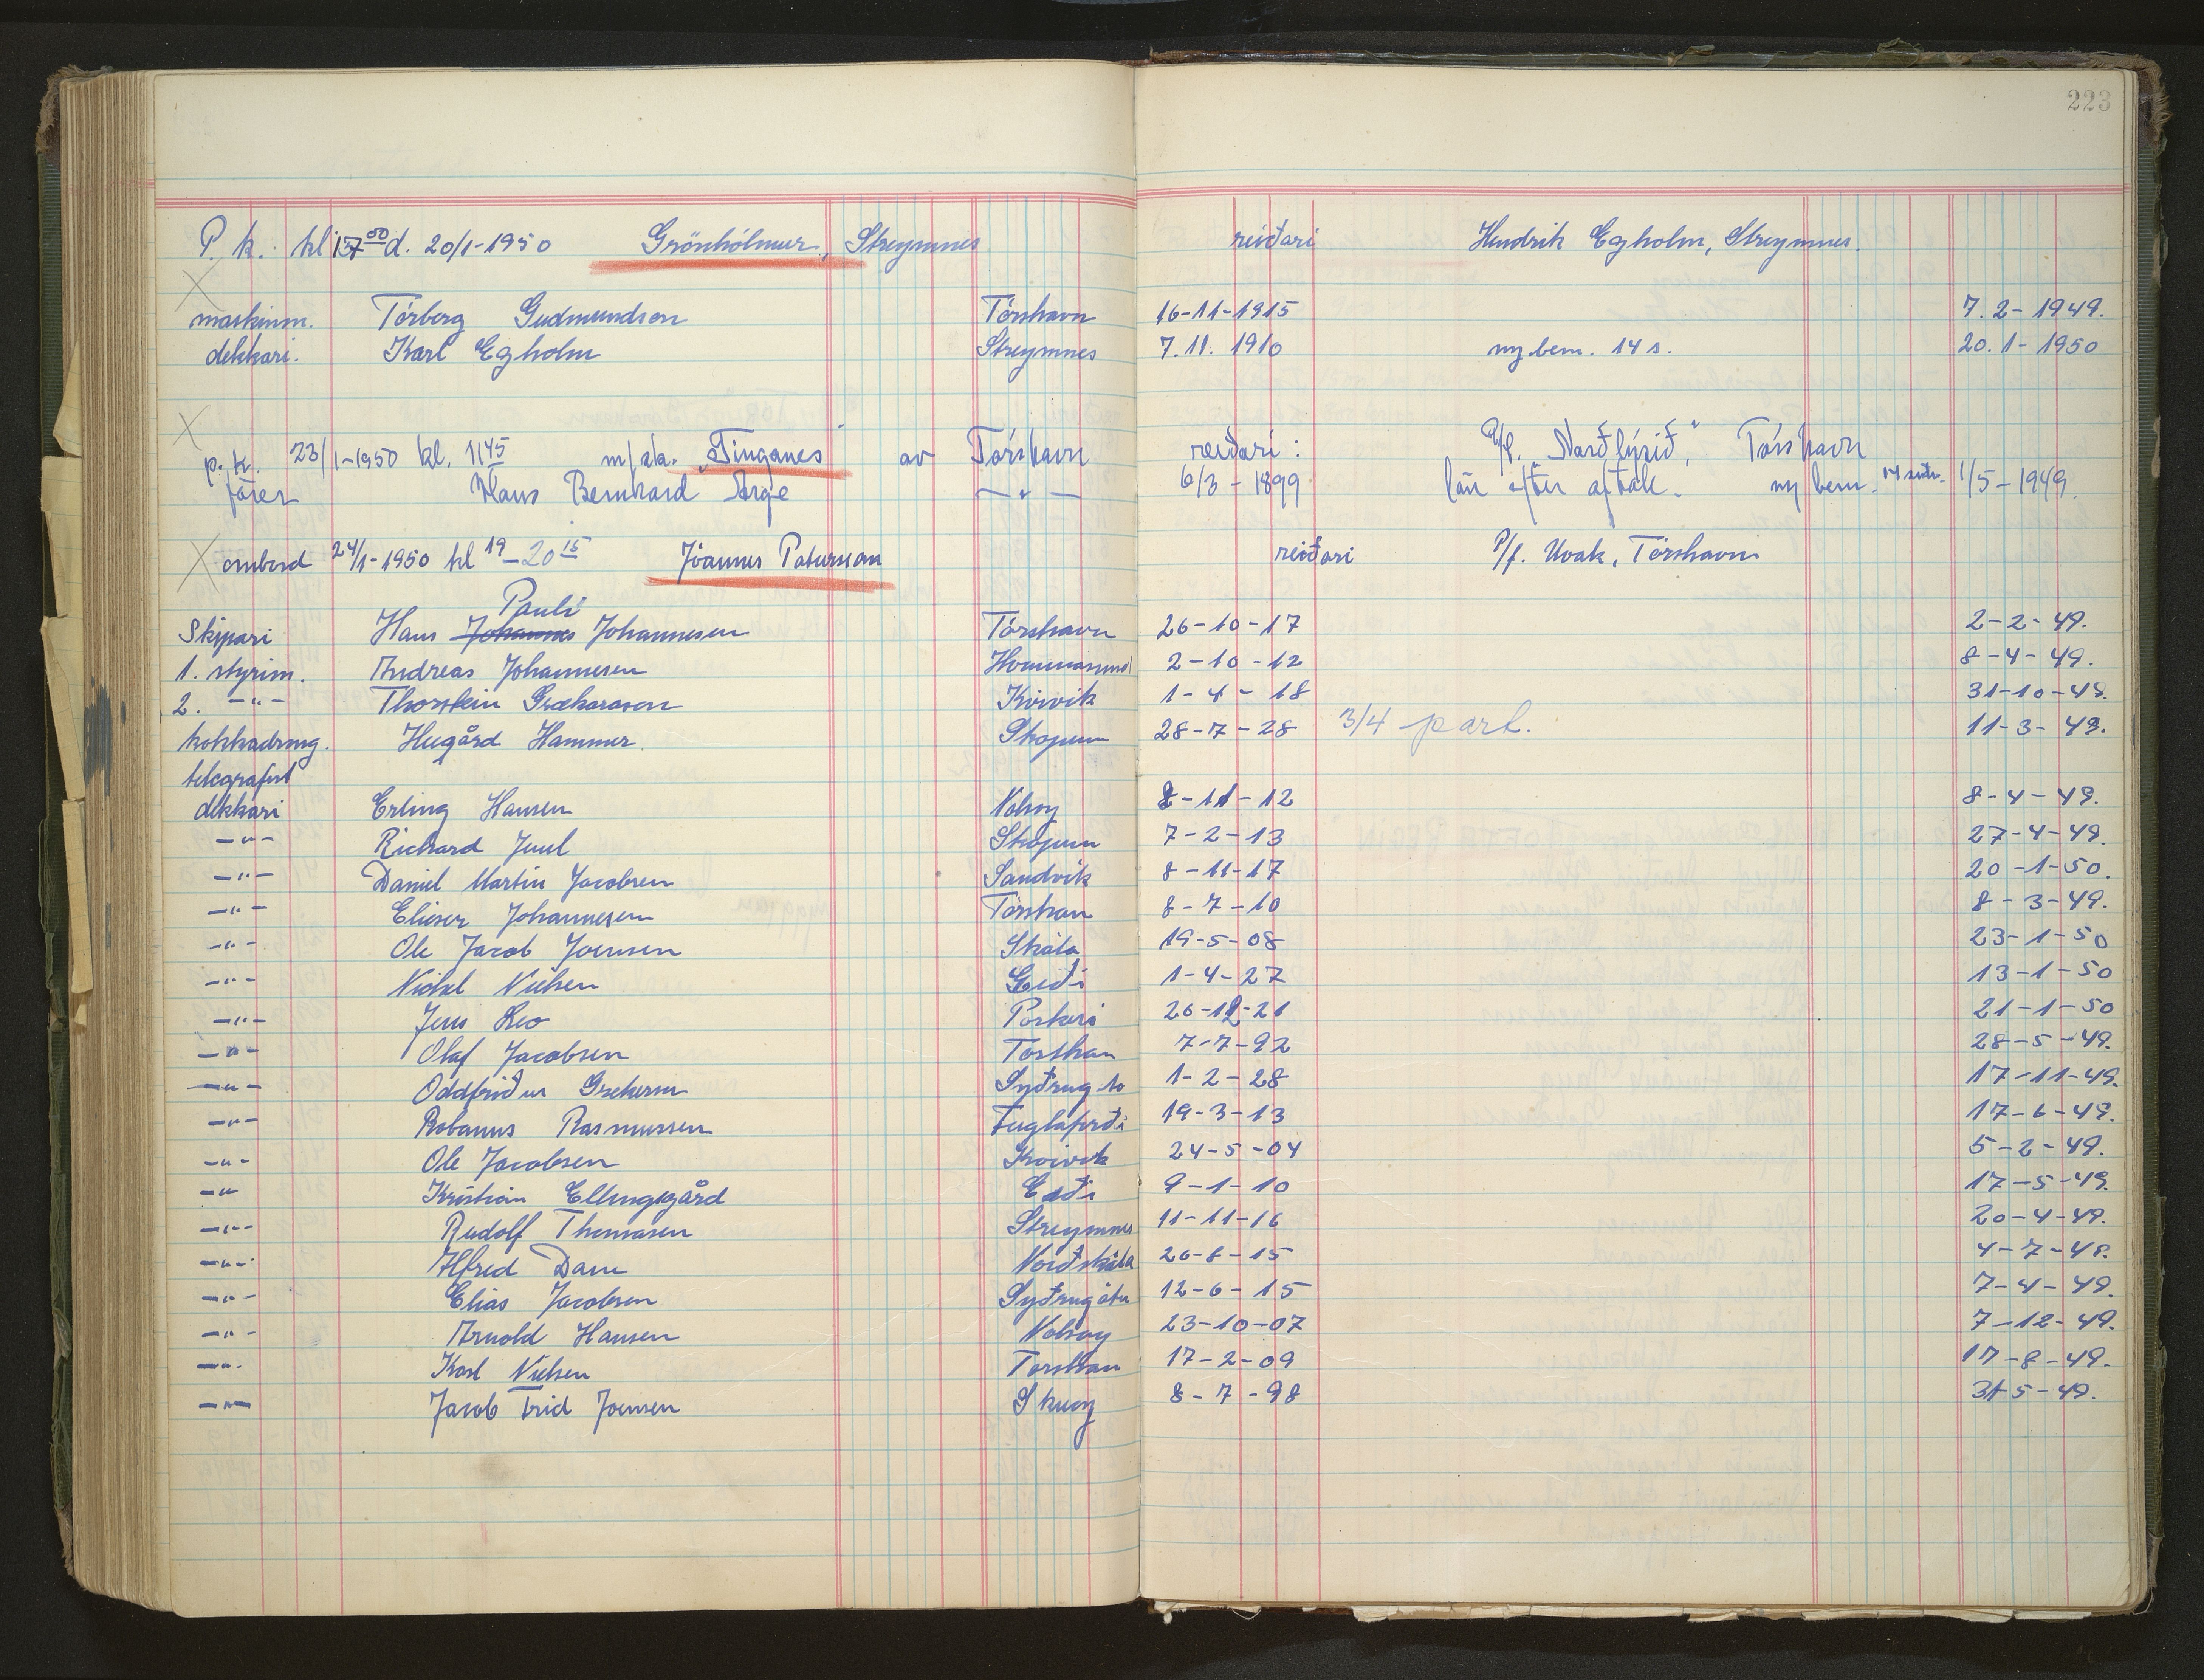 223
P. k. kl 17⁰⁰ d. 20/1-1950 Grönhólmur, Streymnes reiðari Hendrik Egholm, Streymnes.
maskinm. Tórberg Gudmundsen Tórshavn 16-11-1915 7. 2 - 1949.
dekkari. Karl Egholm Streymnes 7. 11. 1910 ny bem. 14 s. 20. 1 - 1950
p. k. 23/1-1950 kl. 11⁴⁵ m/sk. "Tinganes" av Tórshavn reiðari: P/f. "Norðlýsið", Tórshavn
förer Hans Bernhard Arge -"- 6/3 - 1899 lön eftir aftale. ny bem. 14 1/5 - 1949.
X ombord 24/1-1950 kl 19-20¹⁵ Jóannes Patursson reiðari P/f. Uvak, Tórshavn
Pauli
Skipari Hans Johannes Johannesen Tórshavn 26-10-17 2-2-49.
1. styrim. Andreas Johannesen 2-10-12 8-4-49.
2. -"- Thorstein Grækarsson Kvivik 1-4-18 31-10-49.
kokkadrong. Heugård Hammer. Skopun 28-7-28 3/4 part. 11-3-49.
telegrafist
dekkari Erling Hansen Nolsoy 8-11-12 8-4-49.
-"- Richard Juul Skopun 7-2-13 27-4-49.
-"- Daniel Martin Jacobsen Sandvik 8-11-17 20-1-50.
-"- Elieser Johannesen Tórshan 8-7-10 8-3-49.
-"- Ole Jacob Joensen Skála 19-5-08 23-1-50
-"- Nickel Nielsen Eiði 1-4-27 13-1-50
-"- Jens Leo Porkeri 26-12-21 21-1-50
-"- Olaf Jacobsen Torshan 7-7-92 28-5-49.
-"- Oddfriður Grekersen Syðrugto 1-2-28 17-11-49.
-"- Robanus Rasmussen Fuglafirði 19-3-13 17-6-49.
-"- Ole Jacobsen Kvivik 24-5-04 5-2-49.
-"- Kristian Ellingsgård Eiði 9-1-10 17-5-49.
-"- Rudolf Thomasen Streymnes 11-11-16 20-4-49.
-"- Alfred Dam Norðskála 20-8-15 4-7-49.
-"- Elias Jacobsen Syðrugötu 12-6-15 7-4-49.
-"- Arnold Hansen Nolsoy 23-10-07 7-12-49.
-"- Karl Nielsen Torshan 17-2-09 17-8-49.
-"- Jacob Trid Joensen Skuoy 8-7-98 31-5-49.